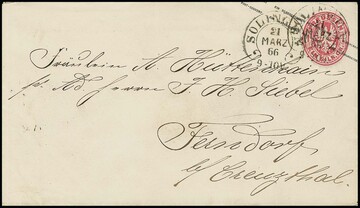 SOLINGEN
21
MÄRZ
66
9-10V
Fräulein A. Hüttenhain
pr. Ad. Herrn J. H. Siebel
Ferndorf
b/ Creuzthal.